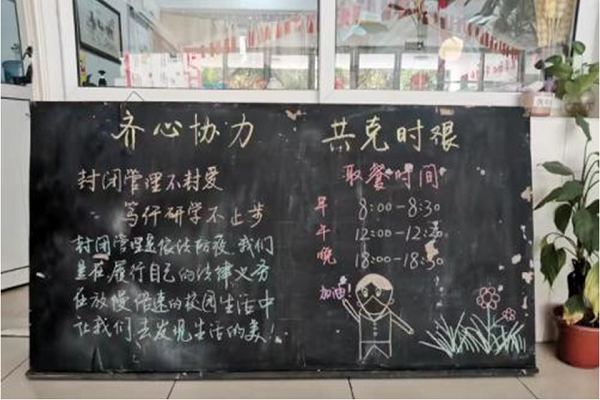 齐心协力 共克时艰
封闭管理不封爱
笃行研学不止步
封闭管理是依法防疫，我们
是在履行自己的法律义务
在放慢倍速的校园生活中
让我们去发现生活的美！
取餐时间
早 8:00-8:30
午 12:00-12:30
晚 18:00-18:30
加油！